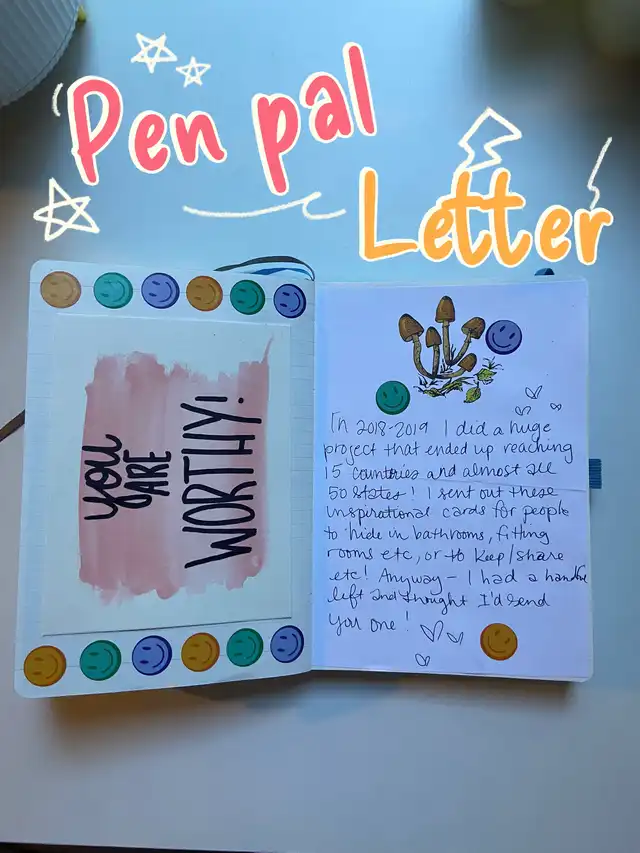 Pen pal
Letter
YOU
ARE
WORTHY!
In 2018-2019 I did a huge
project that ended up reaching
15 countries and almost all
50 states! I sent out these
inspirational cards for people
to hide in bathrooms, fitting
rooms etc, or to keep/share
etc! Anyway - I had a handful
left and thought I'd send
you one!